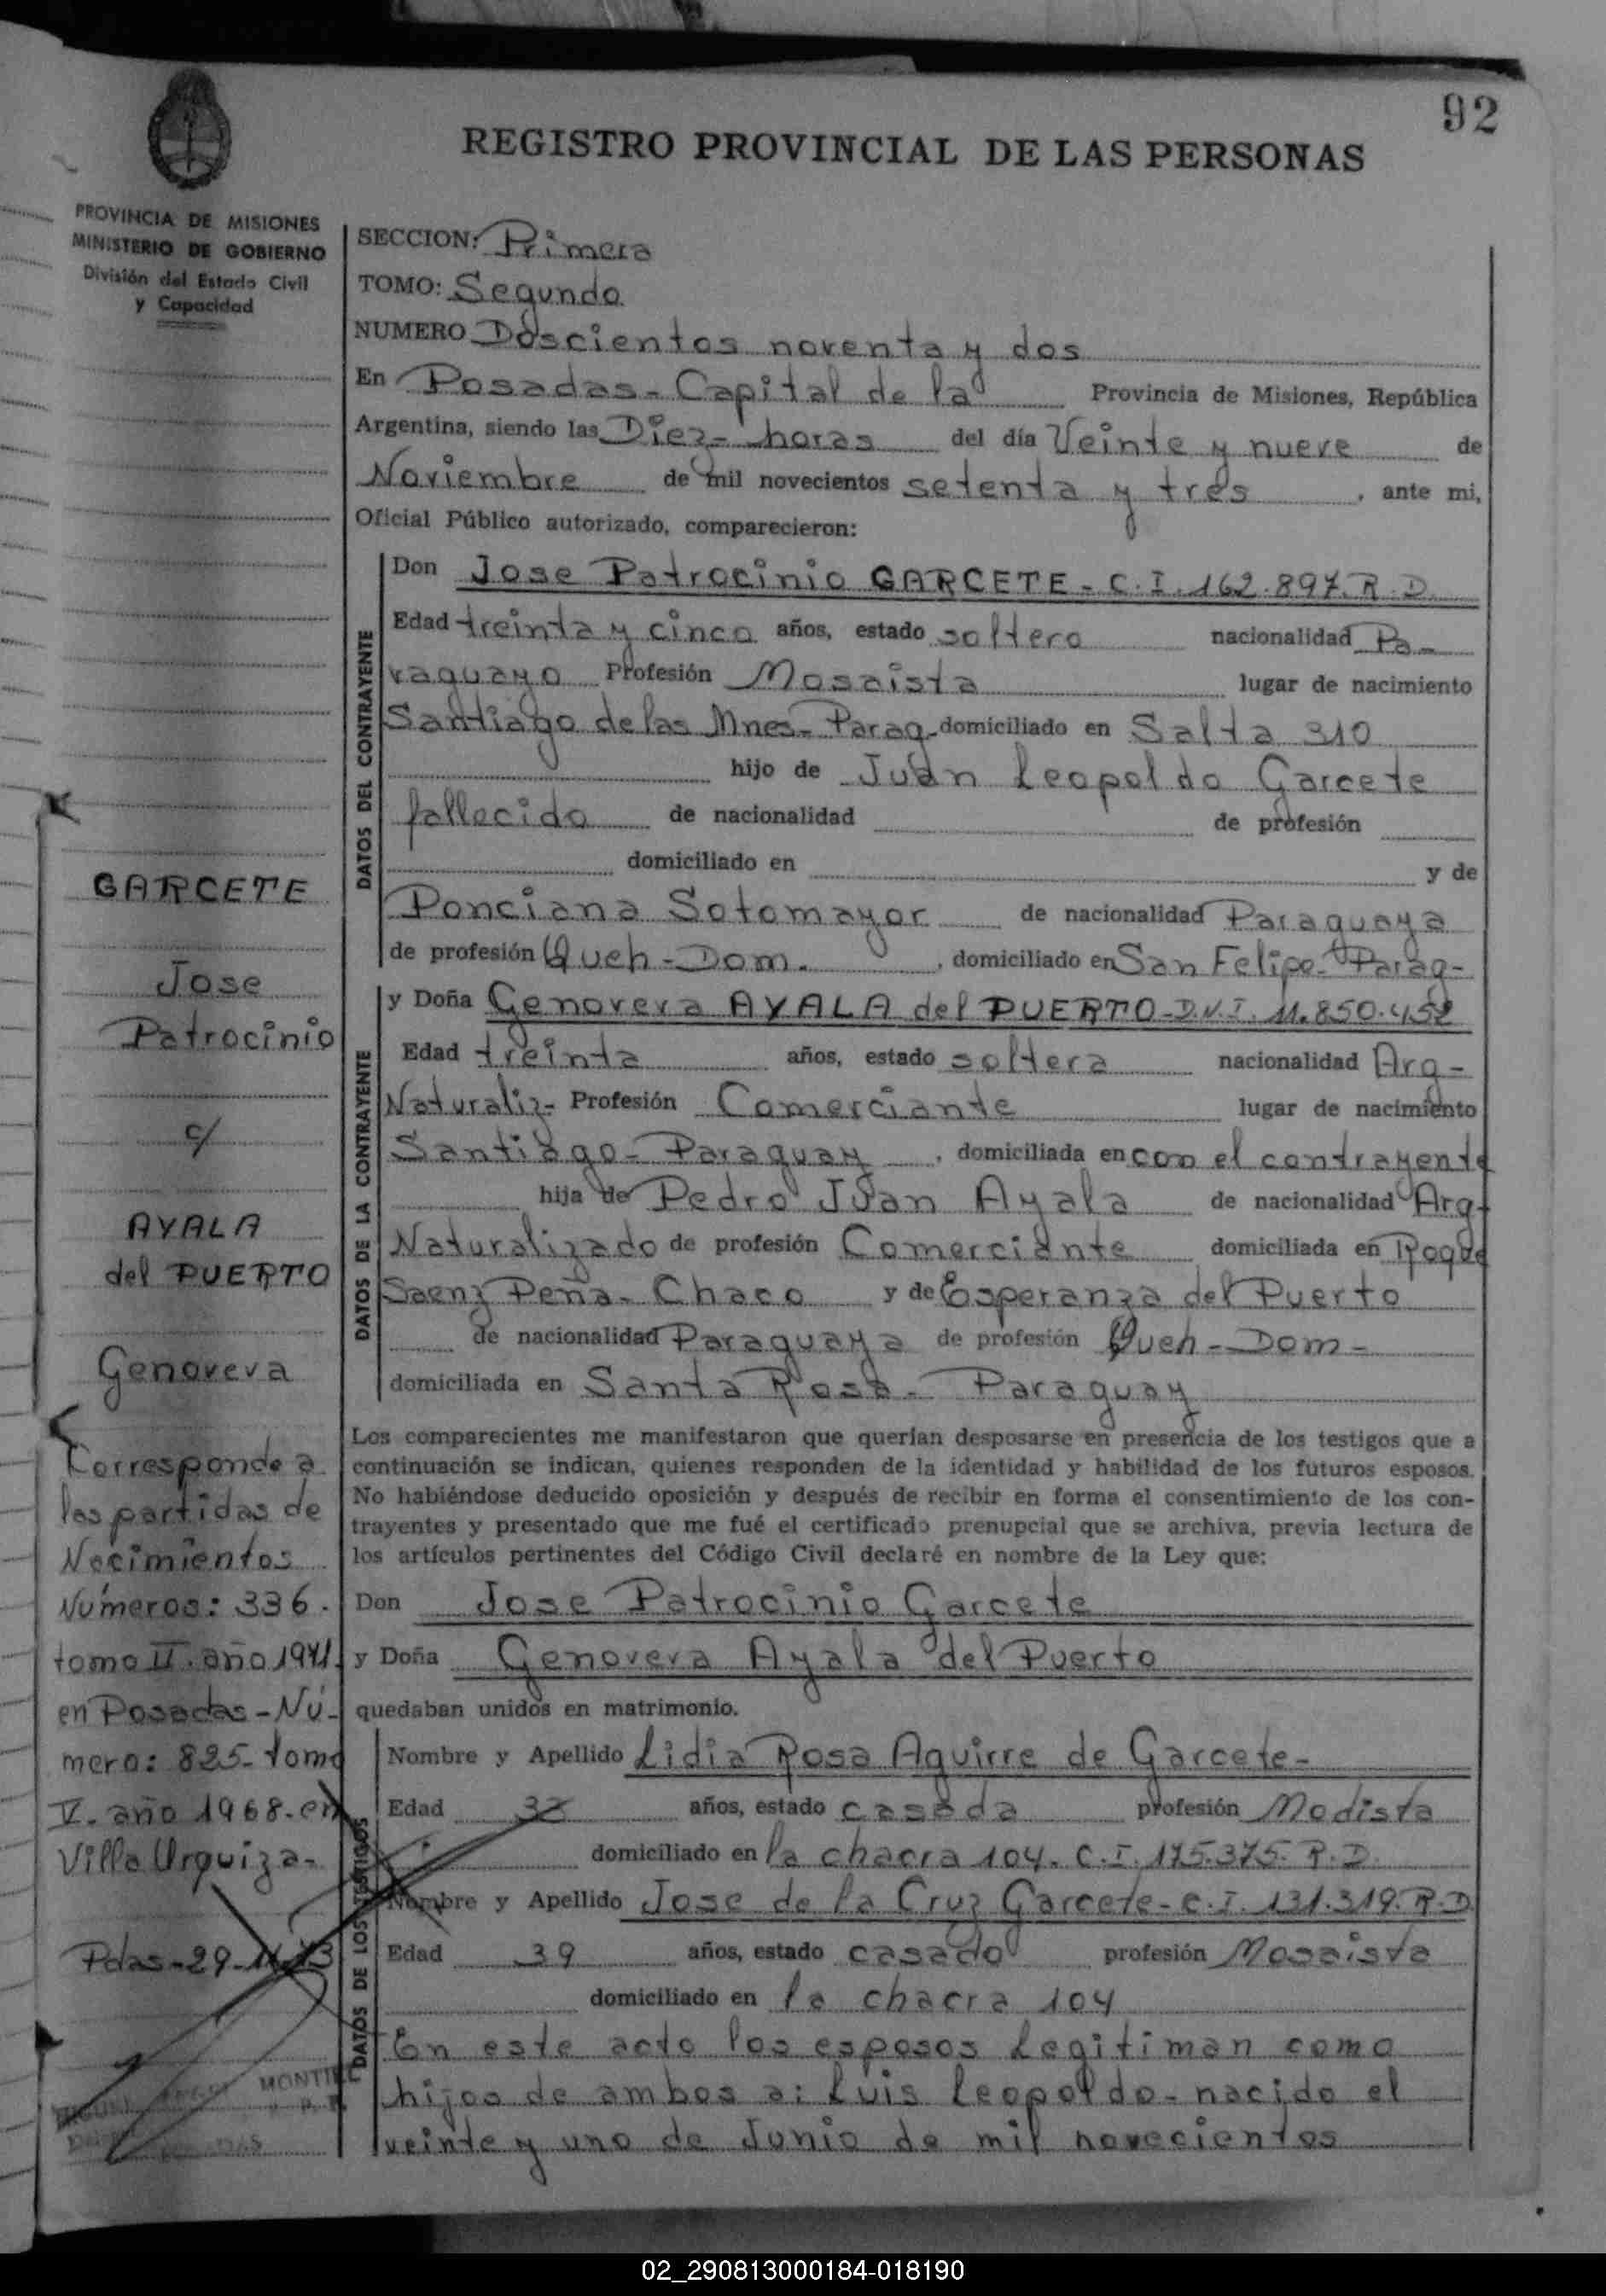 92
REGISTRO PROVINCIAL DE LAS PERSONAS
PROVINCIA DE MISIONES
MINISTERIO DE GOBIERNO
División del Estado Civil
y Capacidad
SECCION: Primera
TOMO: Segundo
NUMERO Doscientos noventa y dos
En Posadas - Capital de la Provincia de Misiones, República
Argentina, siendo las Diez - horas del día Veinte y nueve de
Noviembre de mil novecientos setenta y tres, ante mi,
Oficial Público autorizado, comparecieron:
DATOS DEL CONTRAYENTE
Don Jose Patrocinio GARCETE - C.I. 162.897. R.D.
Edad treinta y cinco años, estado soltero nacionalidad Pa-
raguayo Profesión Mosaista lugar de nacimiento
Santiago de las Mnes - Parag - domiciliado en Salta 310
hijo de Juan Leopoldo Garcete
fallecido de nacionalidad de profesión
domiciliado en y de
Ponciana Sotomayor de nacionalidad Paraguaya
de profesión Queh - Dom. , domiciliado en San Felipe - Parag -
DATOS DE LA CONTRAYENTE
y Doña Genoveva AYALA del PUERTO - D.N.I. 11.850.452
Edad treinta años, estado soltera nacionalidad Arg -
Naturaliz - Profesión Comerciante lugar de nacimiento
Santiago - Paraguay , domiciliada en con el contrayente
hija de Pedro Juan Ayala de nacionalidad Arg -
Naturalizado de profesión Comerciante domiciliada en Roque
Saenz Peña - Chaco y de Esperanza del Puerto
de nacionalidad Paraguaya de profesión Queh - Dom -
domiciliada en Santa Rosa - Paraguay
Los comparecientes me manifestaron que querían desposarse en presencia de los testigos que a
continuación se indican, quienes responden de la identidad y habilidad de los futuros esposos.
No habiéndose deducido oposición y después de recibir en forma el consentimiento de los con-
trayentes y presentado que me fué el certificado prenupcial que se archiva, previa lectura de
los artículos pertinentes del Código Civil declaré en nombre de la Ley que:
Don Jose Patrocinio Garcete
y Doña Genoveva Ayala del Puerto
quedaban unidos en matrimonio.
DATOS DE LOS TESTIGOS
Nombre y Apellido Lidia Rosa Aguirre de Garcete -
Edad años, estado casada profesión Modista
domiciliado en la chacra 104. C.I. 175.375. R.D.
Nombre y Apellido Jose de la Cruz Garcete - C.I. 131.319. R.D
Edad 39 años, estado casado profesión Mosaista
domiciliado en la chacra 104
En este acto los esposos Legitiman como
hijos de ambos a: Luis Leopoldo - nacido el
veinte y uno de Junio de mil novecientos
GARCETE
Jose
Patrocinio
c/
AYALA
del PUERTO
Genoveva
Corresponde a
las partidas de
Nacimientos
Números: 336.
tomo II. año 1971.
en Posadas - Nú-
mero: 825 - tomo
V. año 1968. en
Villa Urquiza -
Pdas - 29 - 11 - 73
MONTIEL
02_290813000184-018190